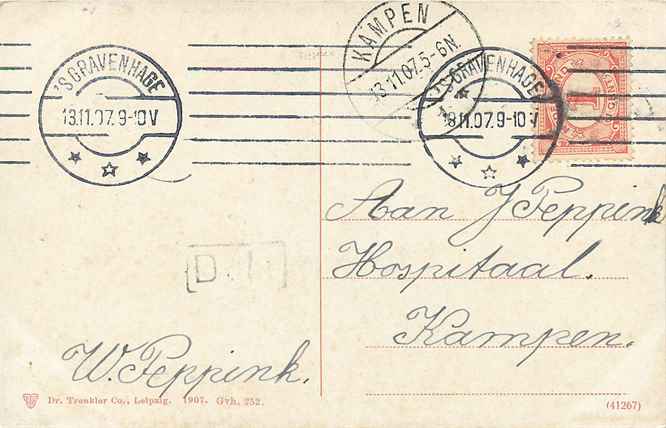 'SGRAVENHAGE
13.11.07. 9-10 V
KAMPEN
13.11.07. 5-6N.
'SGRAVENHAGE
13.11.07. 9-10 V
1
Aan J Peppink
Hospitaal.
Kampen.
W. Peppink.
Dr. Trenkler Co., Leipzig. 1907. Gvh. 252.
(41267)